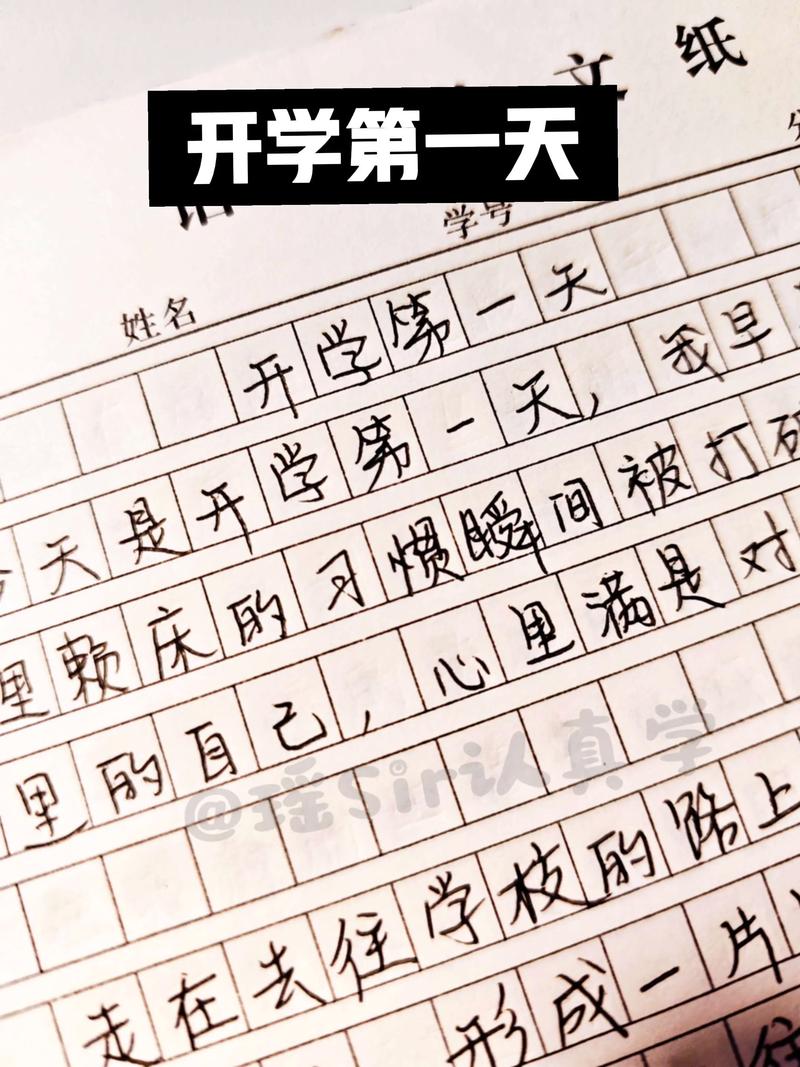 文纸
开学第一天
学号
姓名
开学第一天
今天是开学第一天,我早
里赖床的习惯瞬间被打破
里的自己,心里满是对
@瑶Sir认真学
走在去往学校的路上
形成一片